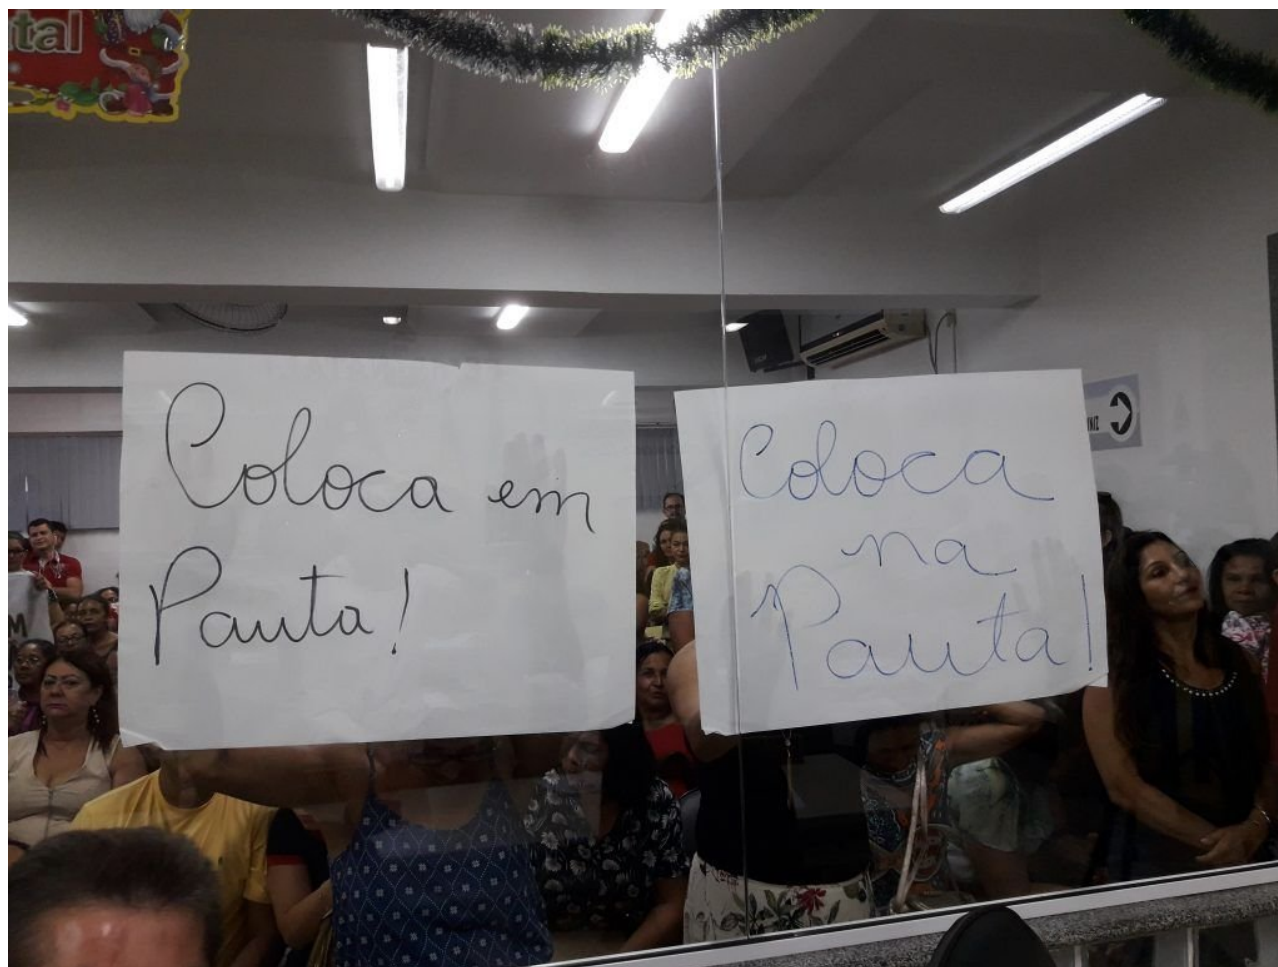 tal
Coloca em
Pauta!
Coloca
na
Pauta!